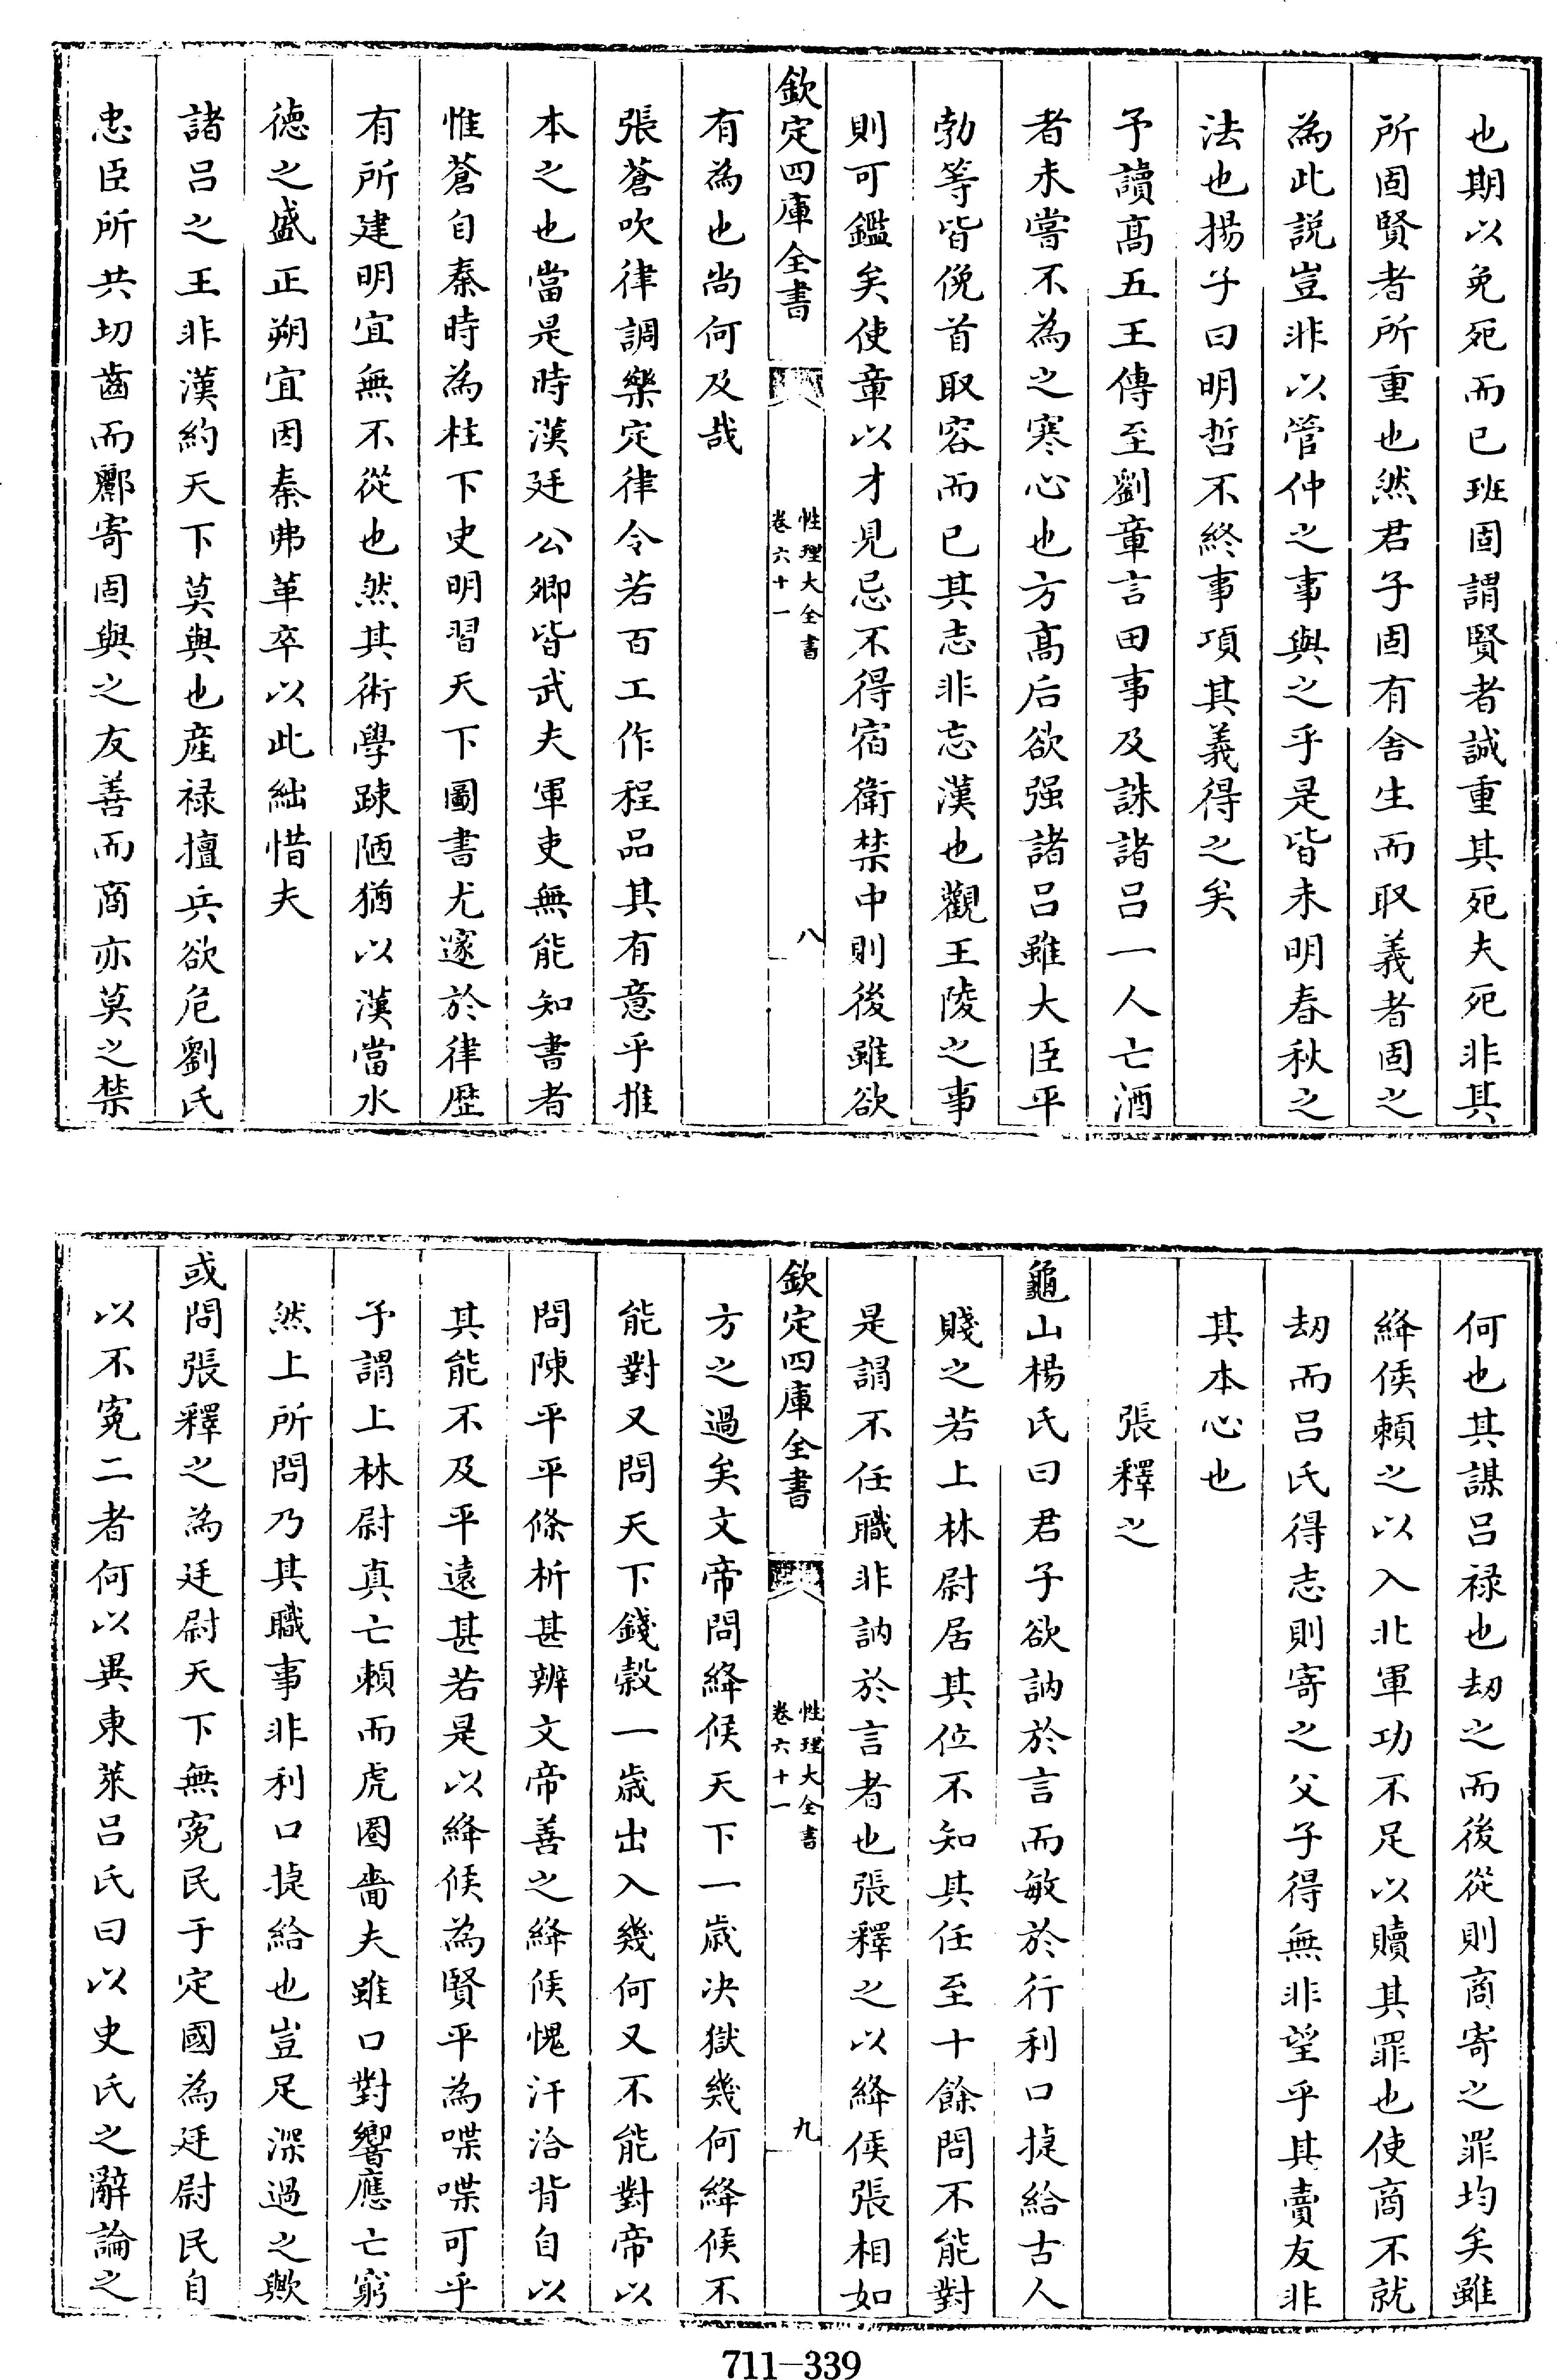 也期以免死而已班固謂賢者誠重其死夫死非其
所固賢者所重也然君子固有舍生而取義者固之
為此説豈非以管仲之事與之乎是皆未明春秋之
法也揚子曰明哲不終事項其義得之矣
予讀髙五王傳至劉章言田事及誅諸吕一人亡酒
者未嘗不為之寒心也方髙后欲强諸吕雖大臣平
勃等皆俛首取容而已其志非忘漢也觀王陵之事
則可鑑矣使章以才見忌不得宿衛禁中則後雖欲
欽定四庫全書
性理大全書
卷六十一
八
有為也尚何及哉
張蒼吹律調樂定律令若百工作程品其有意乎推
本之也當是時漢廷公卿皆武夫軍吏無能知書者
惟蒼自秦時為柱下史明習天下圖書尤邃於律歴
有所建明宜無不從也然其術學踈陋猶以漢當水
德之盛正朔宜因秦弗革卒以此絀惜夫
諸吕之王非漢約天下莫與也産禄擅兵欲危劉氏
忠臣所共切齒而酈寄固與之友善而商亦莫之禁
何也其謀吕禄也刼之而後從則商寄之罪均矣雖
絳侯頼之以入北軍功不足以贖其罪也使商不就
刼而吕氏得志則寄之父子得無非望乎其賣友非
其本心也
張釋之
龜山楊氏曰君子欲訥於言而敏於行利口捷給古人
賤之若上林尉居其位不知其任至十餘問不能對
是謂不任職非訥於言者也張釋之以絳侯張相如
欽定四庫全書
性理大全書
卷六十一
九
方之過矣文帝問絳候天下一歳决獄幾何絳候不
能對又問天下錢穀一歳出入幾何又不能對帝以
問陳平平條析甚辨文帝善之絳候愧汗洽背自以
其能不及平遠甚若是以絳候為賢平為喋喋可乎
予謂上林尉真亡頼而虎圏嗇夫雖口對響應亡窮
然上所問乃其職事非利口捷給也豈足深過之歟
或問張釋之為廷尉天下無寃民于定國為廷尉民自
以不寃二者何以異東萊吕氏曰以史氏之辭論之
711-339